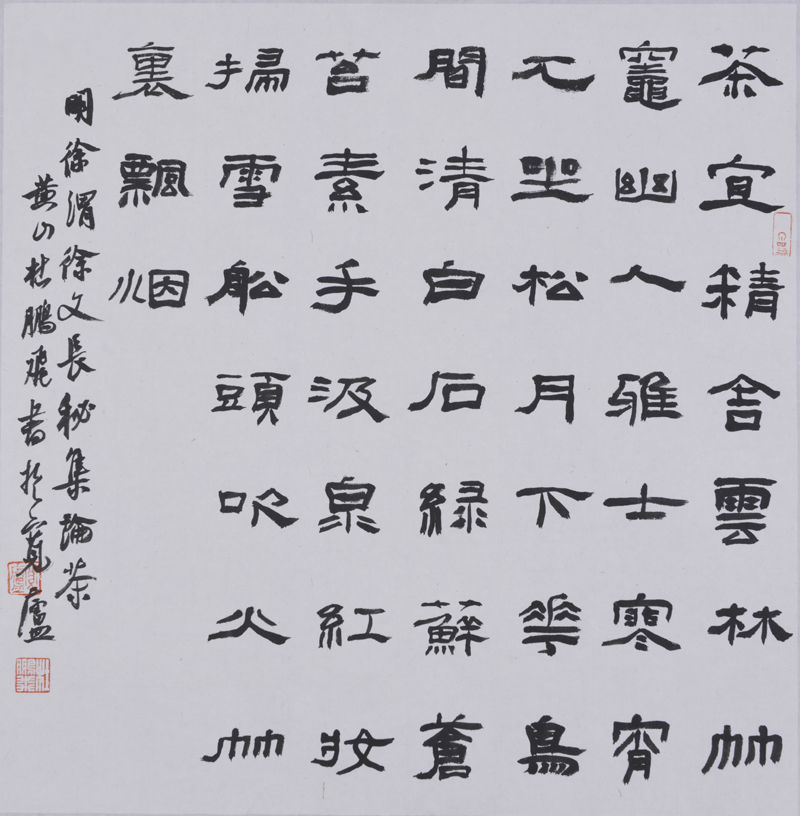 茶宜精舍雲林竹
竈幽人雅士寒宵
兀坐松月下華鳥
間清白石緑蘚蒼
苔素手汲泉紅妝
掃雪舩頭吹火竹
裏飄烟
明徐渭徐文長秘集論茶
黄山杜鵬飛書於寬廬